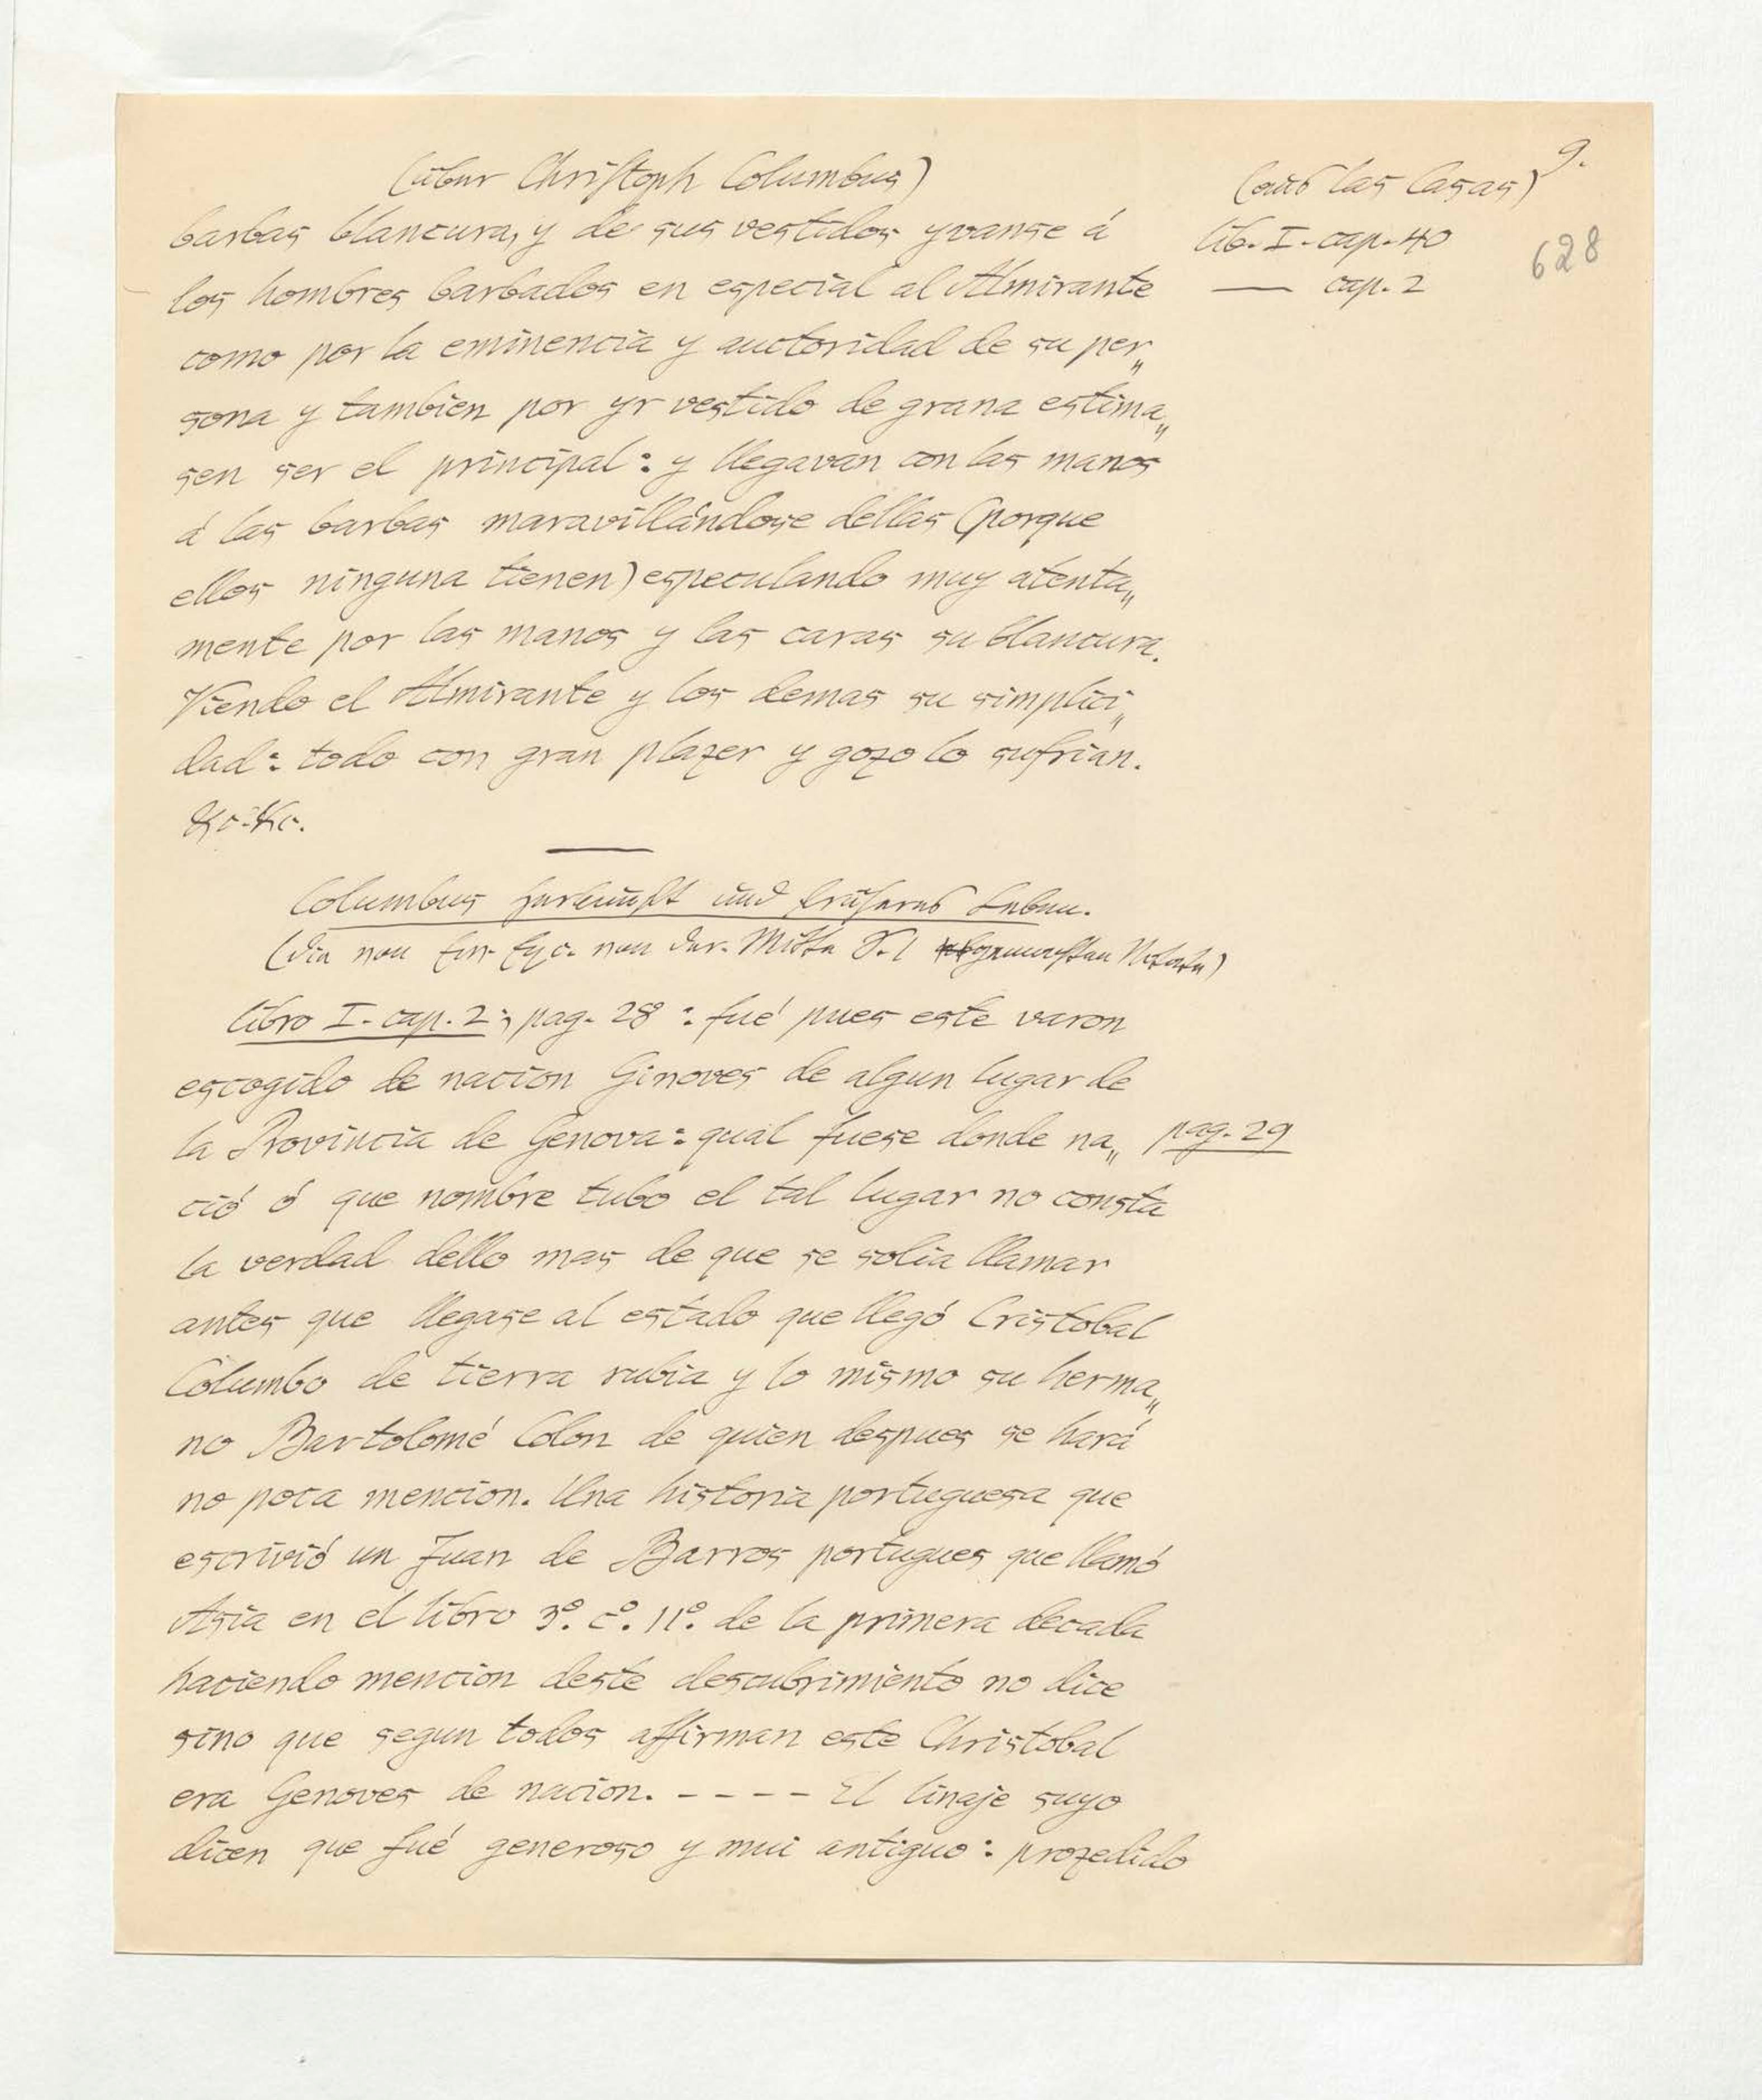 (über Christoph Columbus)
(aus las Casas) 9.
barbas blancura, y de sus vestidos yvanse á
lib. I. cap. 40
628
los hombres barbados en especial al Almirante
— cap. 2
como por la eminencia y auctoridad de su per„
sona y tambien por yr vestido de grana estima„
sen ser el principal: y llegavan con las manos
á las barbas maravillándose dellas (porque
ellos ninguna tienen) especulando muy atenta„
mente por las manos y las caras su blancura.
Viendo el Almirante y los demas su simplici„
dad: todo con gran plazer y gozo lo sufrian.
&c. &c.
Columbus Herkunft und früheres Leben.
(die von der Mitte
libro I. cap. 2; pag. 28: fué pues este varon
escogido de nacion Ginoves de algun lugar de
la Provincia de Genova: qual fuese donde na„
pag. 29
ció ó que nombre tubo el tal lugar no consta
la verdad dello mas de que se solia llamar
antes que llegase al estado que llegó Cristobal
Columbo de tierra rubia y lo mismo su herma„
no Bartolomé Colon de quien despues se hará
no poca mencion. Una historia portuguesa que
escrivió un Juan de Barros portugues que llamó
Asia en el libro 3º. cº. 11º. de la primera decada
haciendo mencion deste descubrimiento no dice
sino que segun todos affirman este Christobal
era Genoves de nacion. - - - - - El linaje suyo
dicen que fué generoso y mui antiguo: prozedido